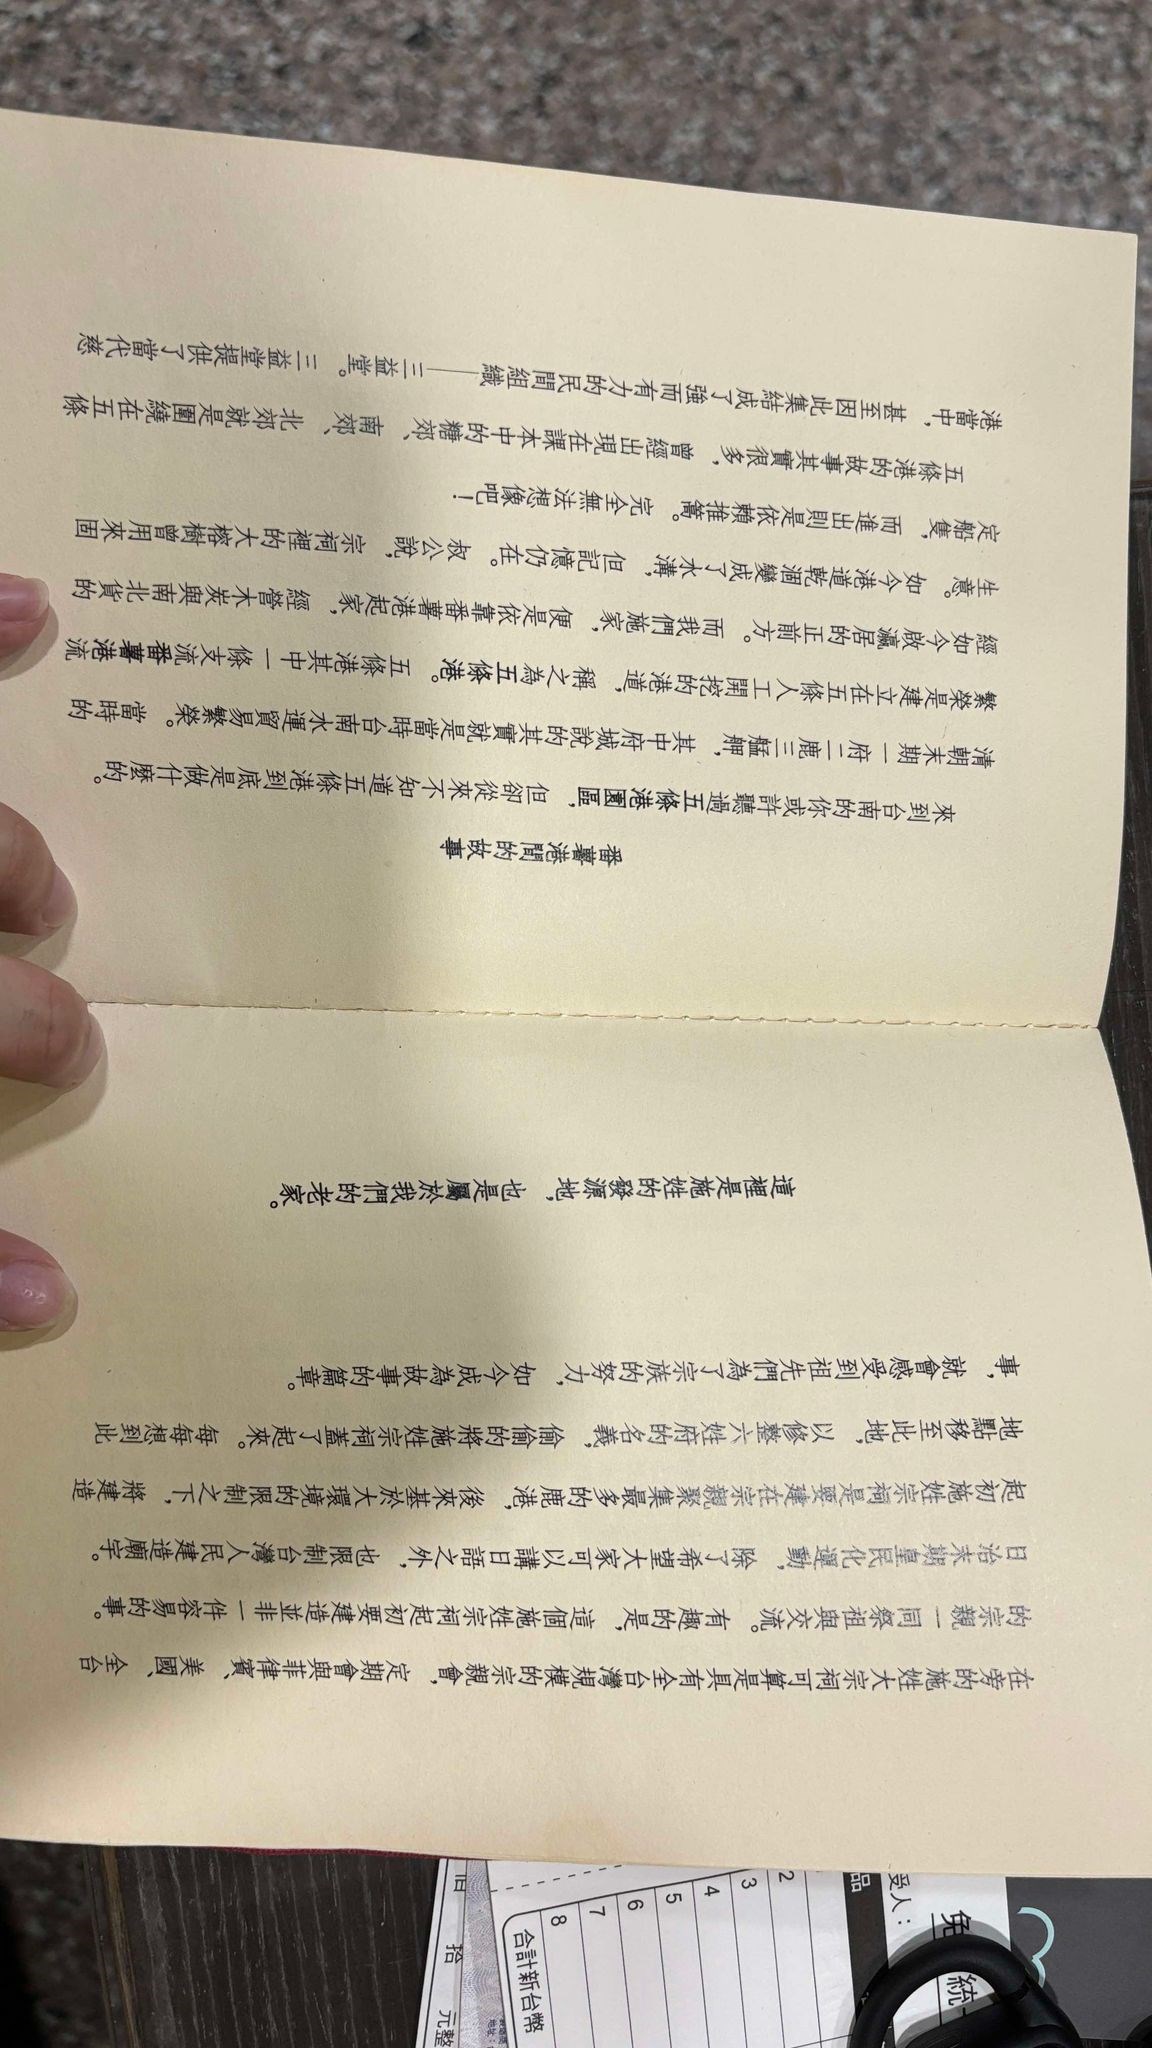 在旁的施姓大宗祠可算是具有全台灣規模的宗親會，定期會與菲律賓、美國、全台
的宗親一同祭祖與交流。有趣的是，這個施姓宗祠起初要建造並非一件容易的事。
日治末期皇民化運動，除了希望大家可以講日語之外，也限制台灣人民建造廟宇。
起初施姓宗祠是要建在宗親聚集最多的鹿港，後來基於大環境的限制之下，將建造
地點移至此地，以修整六姓府的名義，偷偷的將施姓宗祠蓋了起來。每每想到此
事，就會感受到祖先們為了宗族的努力，如今成為故事的篇章。
這裡是施姓的發源地，也是屬於我們的老家。
番薯港間的故事
來到台南的你或許聽過五條港園區，但卻從來不知道五條港到底是做什麼的。
清朝末期一府二鹿三艋舺，其中府城說的其實就是當時台南水運貿易繁榮。當時的
繁榮是建立在五條人工開挖的港道，稱之為五條港。五條港其中一條支流番薯港流
經如今啟瀛居的正前方。而我們施家，便是依靠番薯港起家，經營木炭與南北貨的
生意。如今港道乾涸變成了水溝，但記憶仍在。叔公說，宗祠裡的大榕樹曾用來固
定船隻，而進出則是依賴推篙。完全無法想像吧！
五條港的故事其實很多，曾經出現在課本中的糖郊、南郊、北郊就是圍繞在五條
港當中，甚至因此集結成了強而有力的民間組織——三益堂。三益堂提供了當代慈
受人：
品
2
3
4
5
6
7
8
合計新台幣
拾
元整
免
統